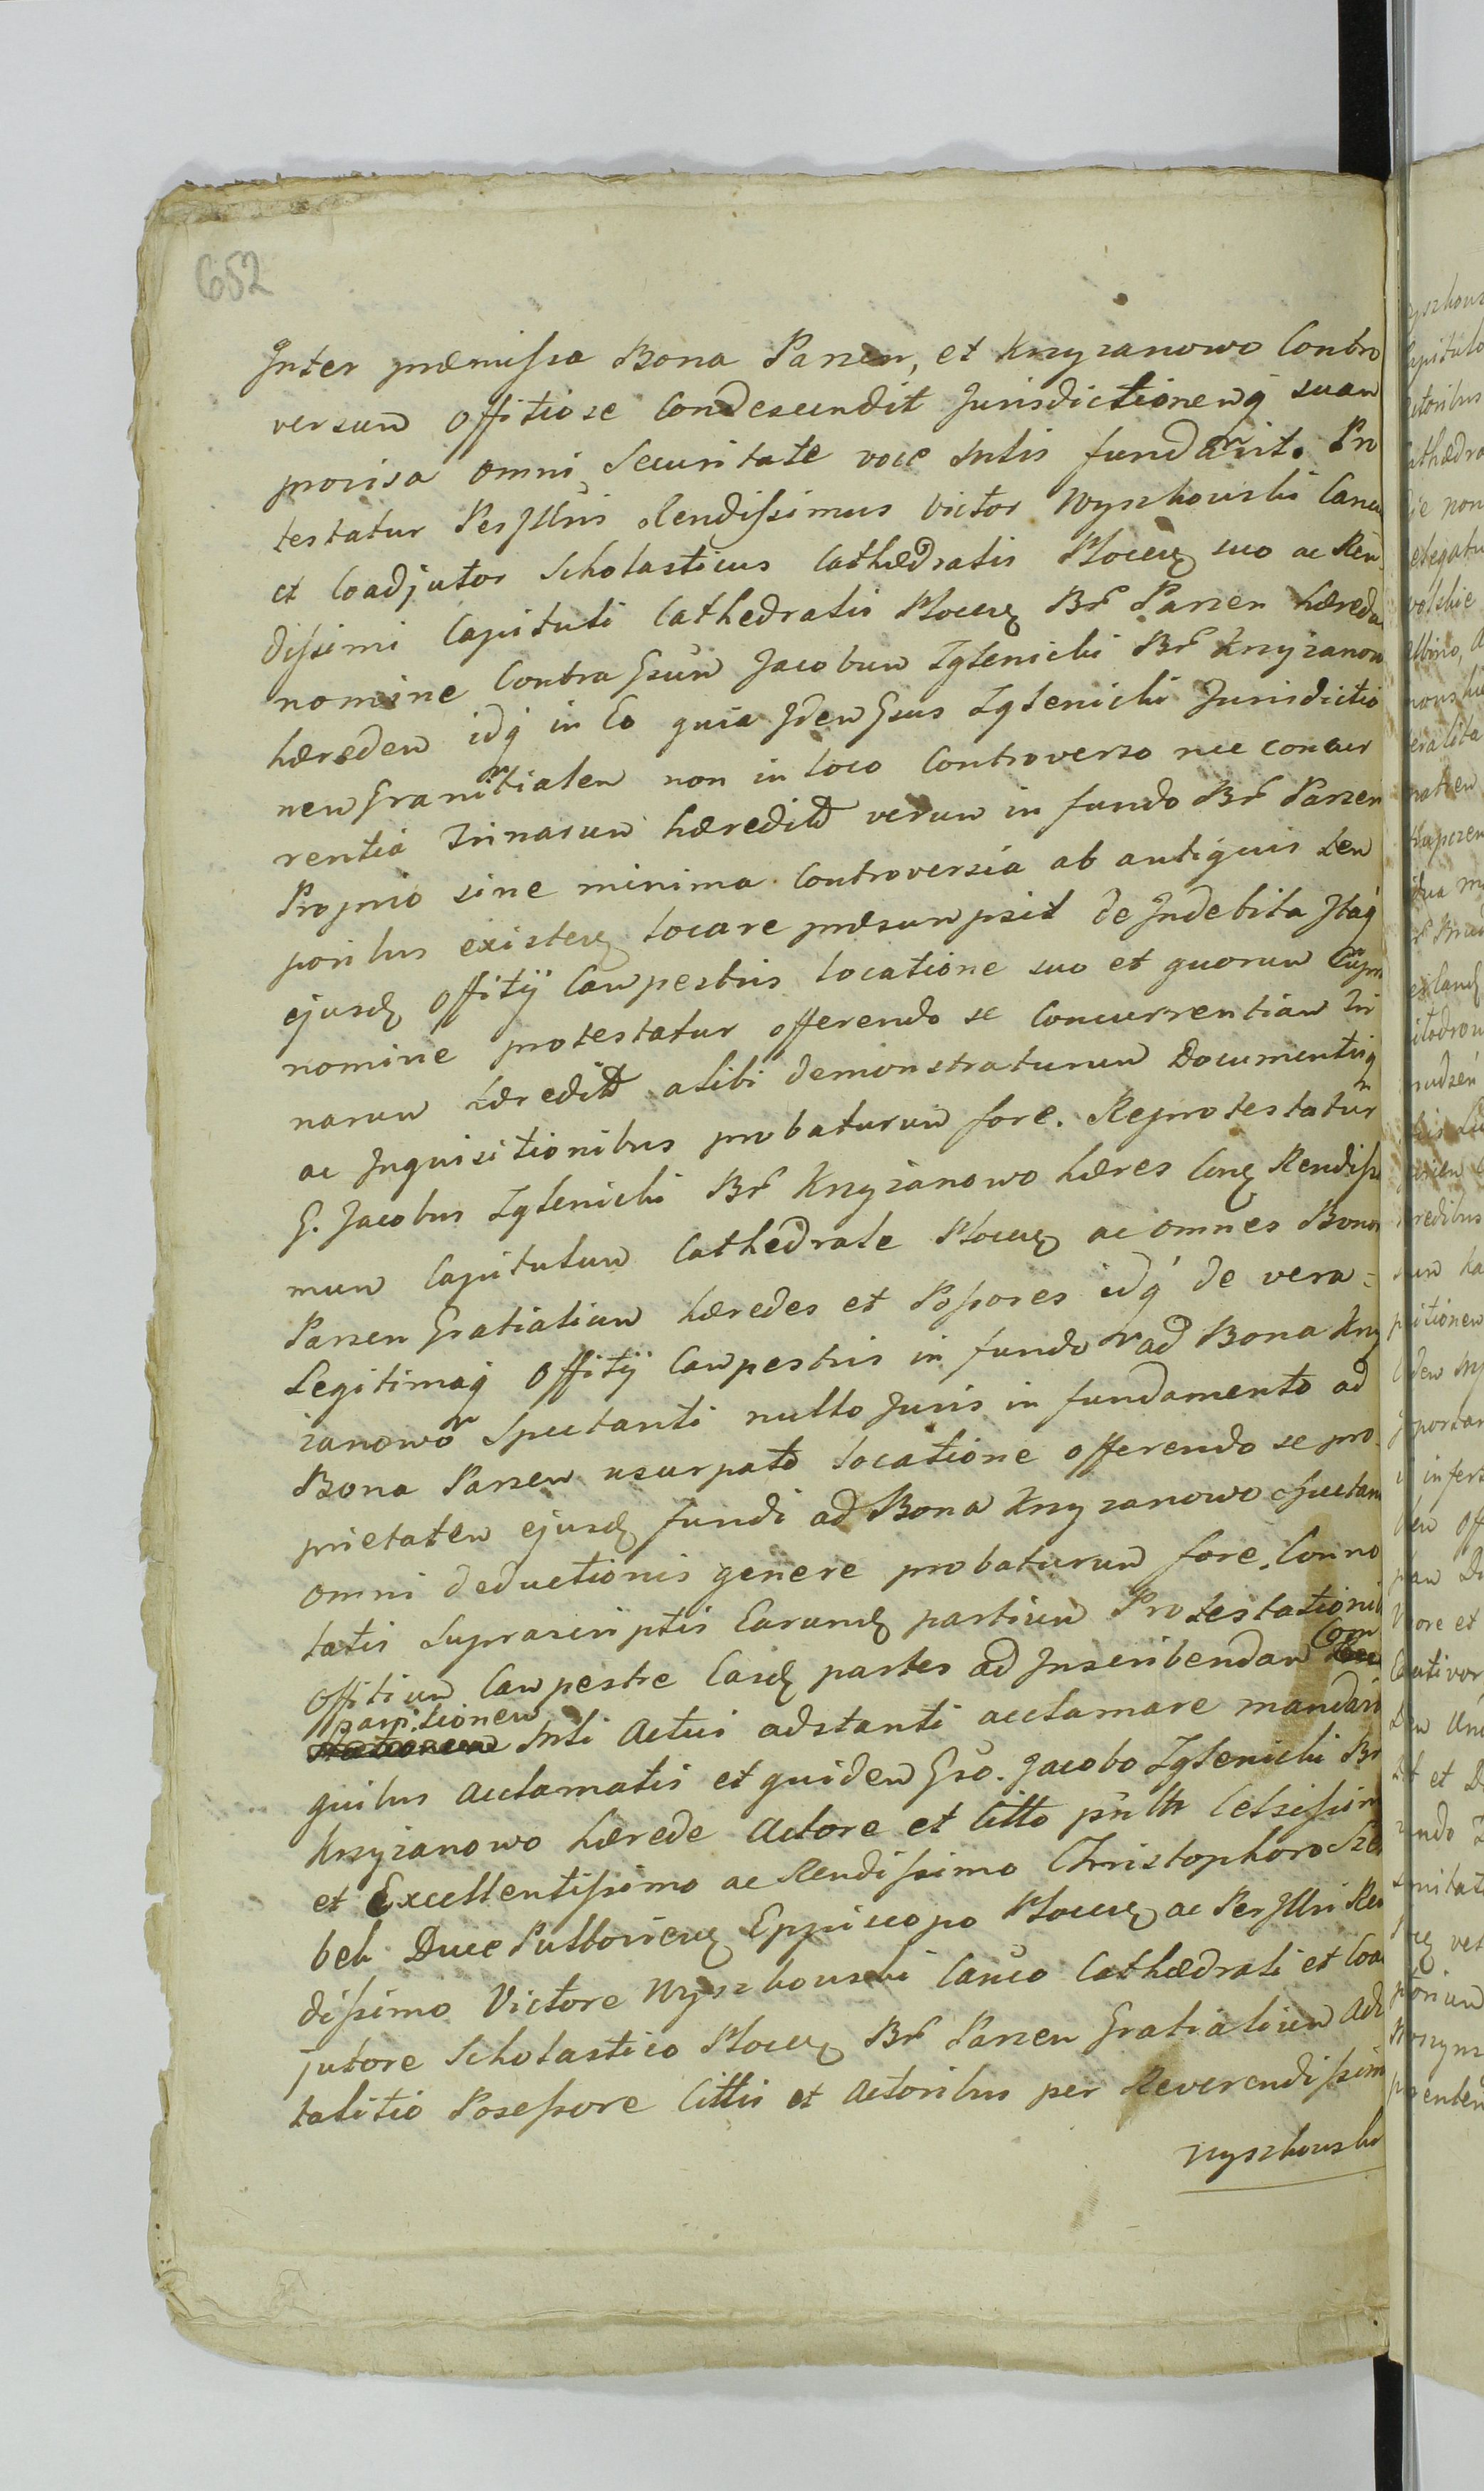 652
Inter præmissa Bona Parzen, et Krzyzanowo Contro
versum offitiose Condescendit Jurisdictionemq suam
provisa omni Securitate voce Mlis fundavit. Pro
testatur PerIllris Rendissimus Victor Wyszkowski Canus
et Coadjutor Scholasticus Cathædralis Plocen suo ac Ren
dissimi Capituli Cathedralis Plocen Br Parzen hæredu
nomine Contra Gsum Jacobum Zglenicki Br Krzyzanow
hæredem idq in Eo quia Idem Gsus Zglenicki Jurisdictio
nem Granitialem non in loco Controverso nec concur
rentia Trinarum hæredit verum in fundo Br Parzen
Proprio sine minima Controversia ab antiquis tem
poribus existen locare præsumpsit de Indebita Itaq
ejusd offitij Campestris locatione suo et quorum Supra
nomine protestatur offerendo se Concurrentiam Tri
narum hæredit alibi demonstraturum Documentisq
ac Inquisitionibus probaturum fore. Reprotestatur
G. Jacobus Zglenicki Br Krzyzanowo hæres Con Rendissi
mum Capitulum Cathedrale Plocen ac omnes Bonor
Parzen Gratialium hæredes et Possores idq de vera
Legitimaq Offitij Campestris in fundo ad Bona Krzy
zanowo Spectanti nullo Juris in fundamento ad
Bona Parzen usurpato locatione offerendo se pro
prietatem ejusd fundi ad Bona Krzyzanowo Spectan
omni deductionis genere probaturum fore. Conno
tatis Suprascriptis Earund partium Protestationib
Offitium Campestre Easd partes ad Inscribendam Com
paritionem Mli Actui adstanti acclamare mandavit
quibus acclamatis et quidem Gso. Jacobo Zglenicki Br
Krzyzanowo hærede Actore et Citto pnlr Celsissim
et Excellentissimo ac Rendissimo Christophoro Szem
bek Duce Pultovien Eppiscopo Plocen ac PerIllri Ren
dissimo Victore Wyszkowski Canco Cathædrali et Coad
jutore Scholastico Plocen Br Parzen Gratialium Adv
talitio Posessore Cittis et Actoribus per Reverendissim
Wyszkowski